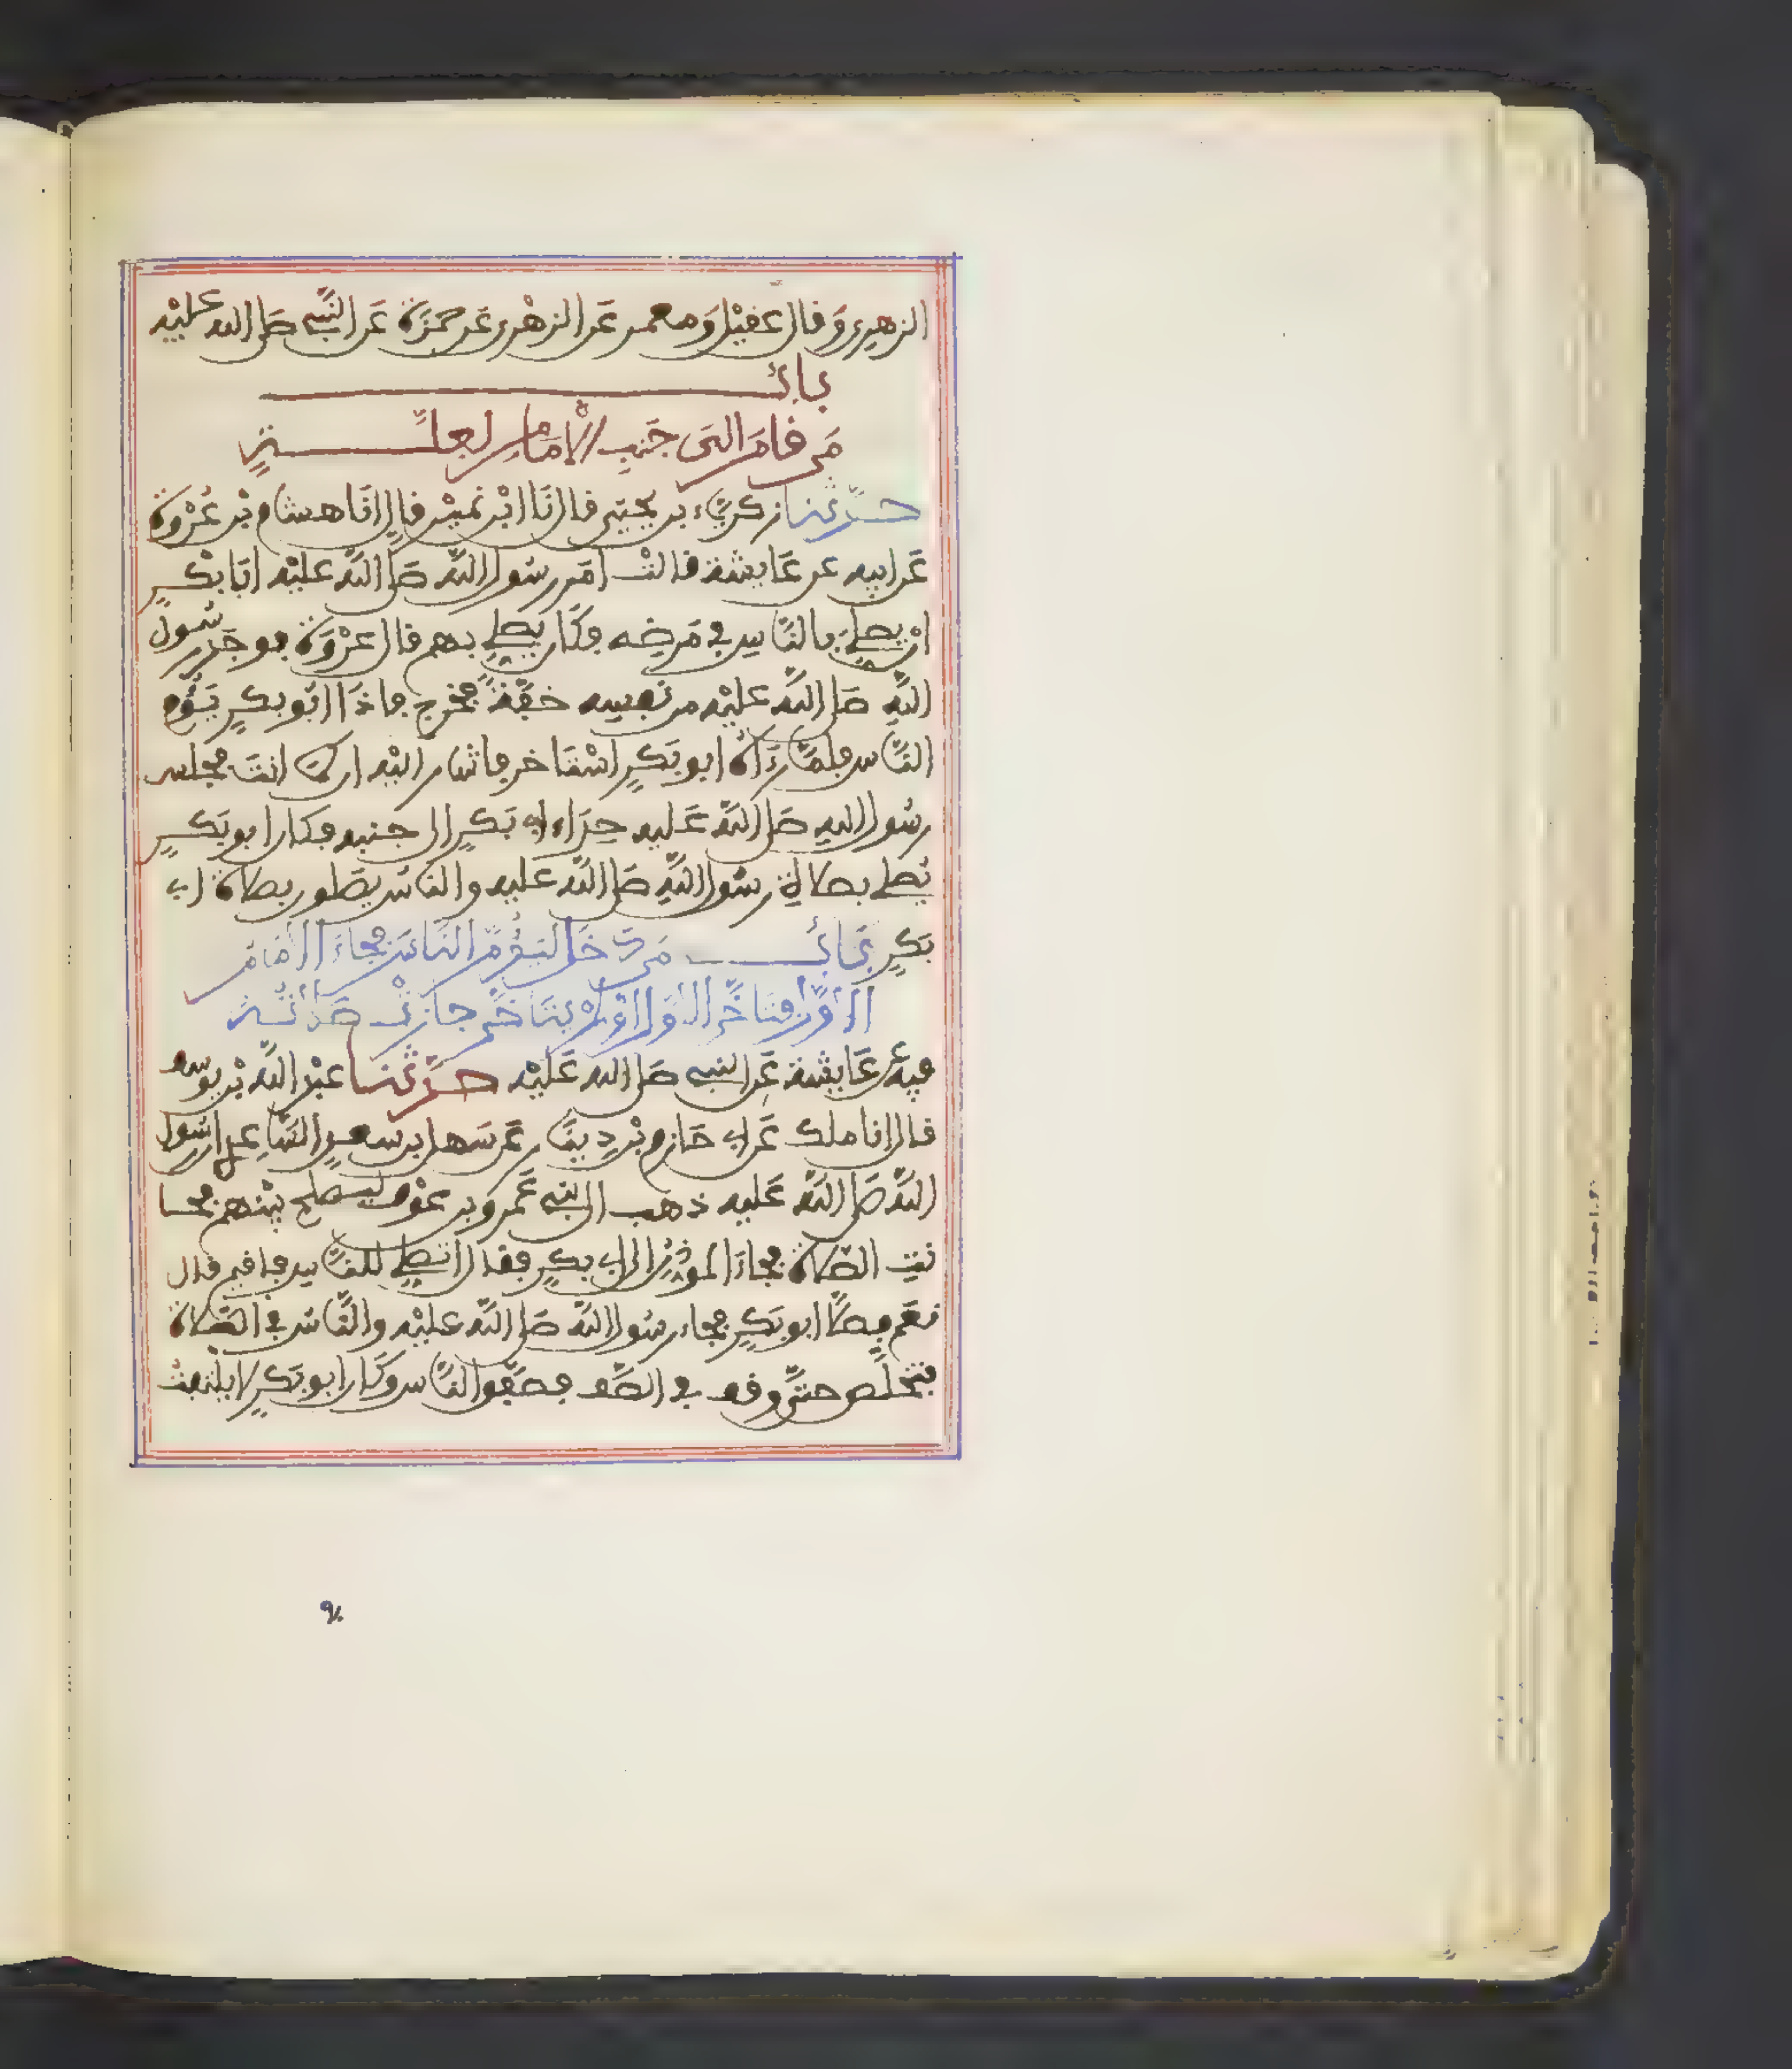 الزهري وقال عقيل ومعمر عن الزهري عن حمزة عن النبي صلى الله عليه
باب
من قام الى جنب الامام لعلة
حدثنا زكرياء بن يحيى قال نا ابن نمير قال انا هشام بن عروة
عن ابيه عن عايشة قالت امر رسول الله صلى الله عليه ابا بكر
ان يصلي بالناس في مرضه فكان يصلي بهم قال عروة فوجد رسول
الله صلى الله عليه من نفسه خفة فخرج فاذا ابو بكر يؤم
الناس فلما رءاه ابو بكر استاخر فاشار اليه ان كما انت فجلس
رسول الله صلى الله عليه حذاء ابي بكر الى جنبه فكان ابو بكر
يصلي بصلاة رسول الله صلى الله عليه والناس يصلون بصلاة ابي
بكر باب من دخل ليؤم الناس فجاء الامام
الاول فتاخر الاول او لم يتاخر جازت صلاته
فيه عن عايشة عن النبي صلى الله عليه حدثنا عبد الله بن يوسف
قال انا ملك عن ابي حازم بن دينار عن سهل بن سعد الساعدي ان رسول
الله صلى الله عليه ذهب الى بني عمرو بن عوف ليصلح بينهم فحا
نت الصلاة فجاء المؤذن الى ابي بكر فقال اتصلي للناس فاقيم قال
نعم فصلى ابو بكر فجاء رسول الله صلى الله عليه والناس في الصلاة
فتخلص حتى وقف في الصف فصفق الناس وكان ابو بكر لا يلتفت